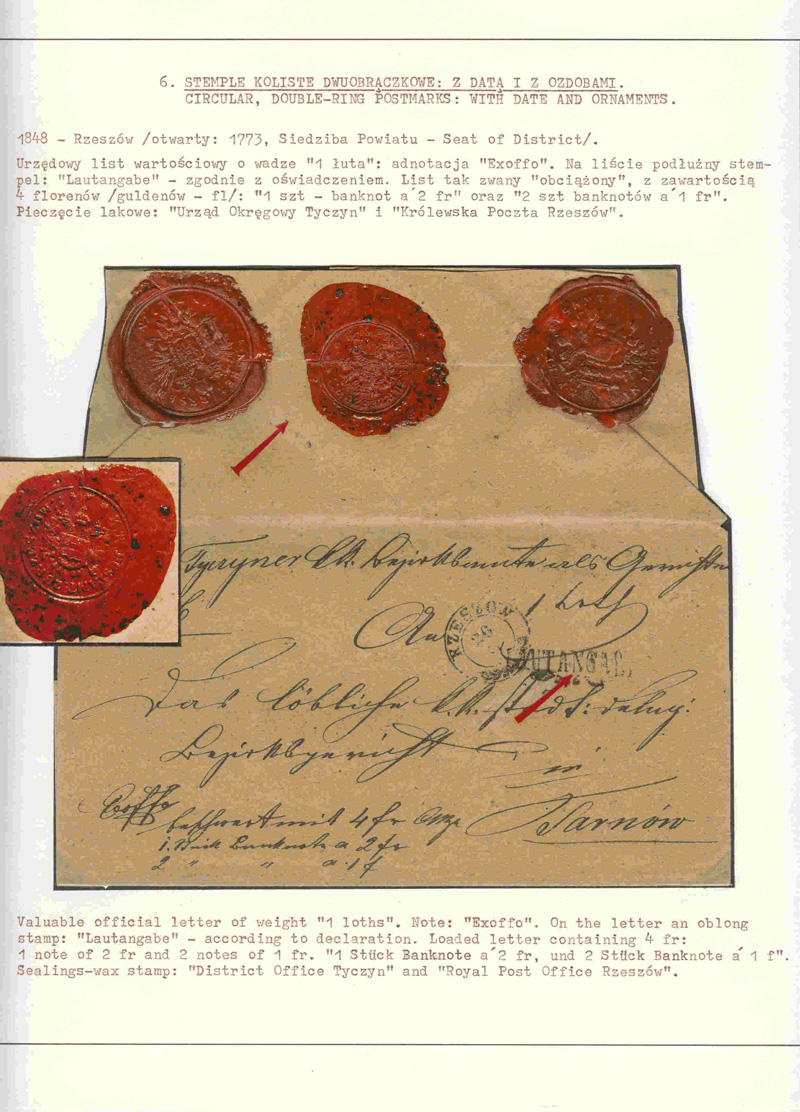 6. STEMPLE KOLISTE DWUOBRĄCZKOWE: Z DATĄ I Z OZDOBAMI.
CIRCULAR, DOUBLE-RING POSTMARKS: WITH DATE AND ORNAMENTS.
1848 - Rzeszów /otwarty: 1773, Siedziba Powiatu - Seat of District/.
Urzędowy list wartościowy o wadze "1 łuta": adnotacja "Exoffo". Na liście podłużny stem-
pel: "Lautangabe" - zgodnie z oświadczeniem. List tak zwany "obciążony", z zawartością
4 florenów /guldenów - fl/: "1 szt - banknot a´2 fr" oraz "2 szt banknotów a´1 fr".
Pieczęcie lakowe: "Urząd Okręgowy Tyczyn" i "Królewska Poczta Rzeszów".
Tyczyner k.k. Bezirksamte als Gerichte
1 Loth
An
RZESZOW
26
LAUTANGAB,
Das löbliche k.k. städt: deleg:
Bezirksgericht
in
Tarnów
Exoffo
beschwert mit 4 fr
1 Stück Banknote a 2 fr
2 " " a 1 f
Valuable official letter of weight "1 loths". Note: "Exoffo". On the letter an oblong
stamp: "Lautangabe" - according to declaration. Loaded letter containing 4 fr:
1 note of 2 fr and 2 notes of 1 fr. "1 Stück Banknote a´2 fr, und 2 Stück Banknote á 1 f".
Sealings-wax stamp: "District Office Tyczyn" and "Royal Post Office Rzeszów".